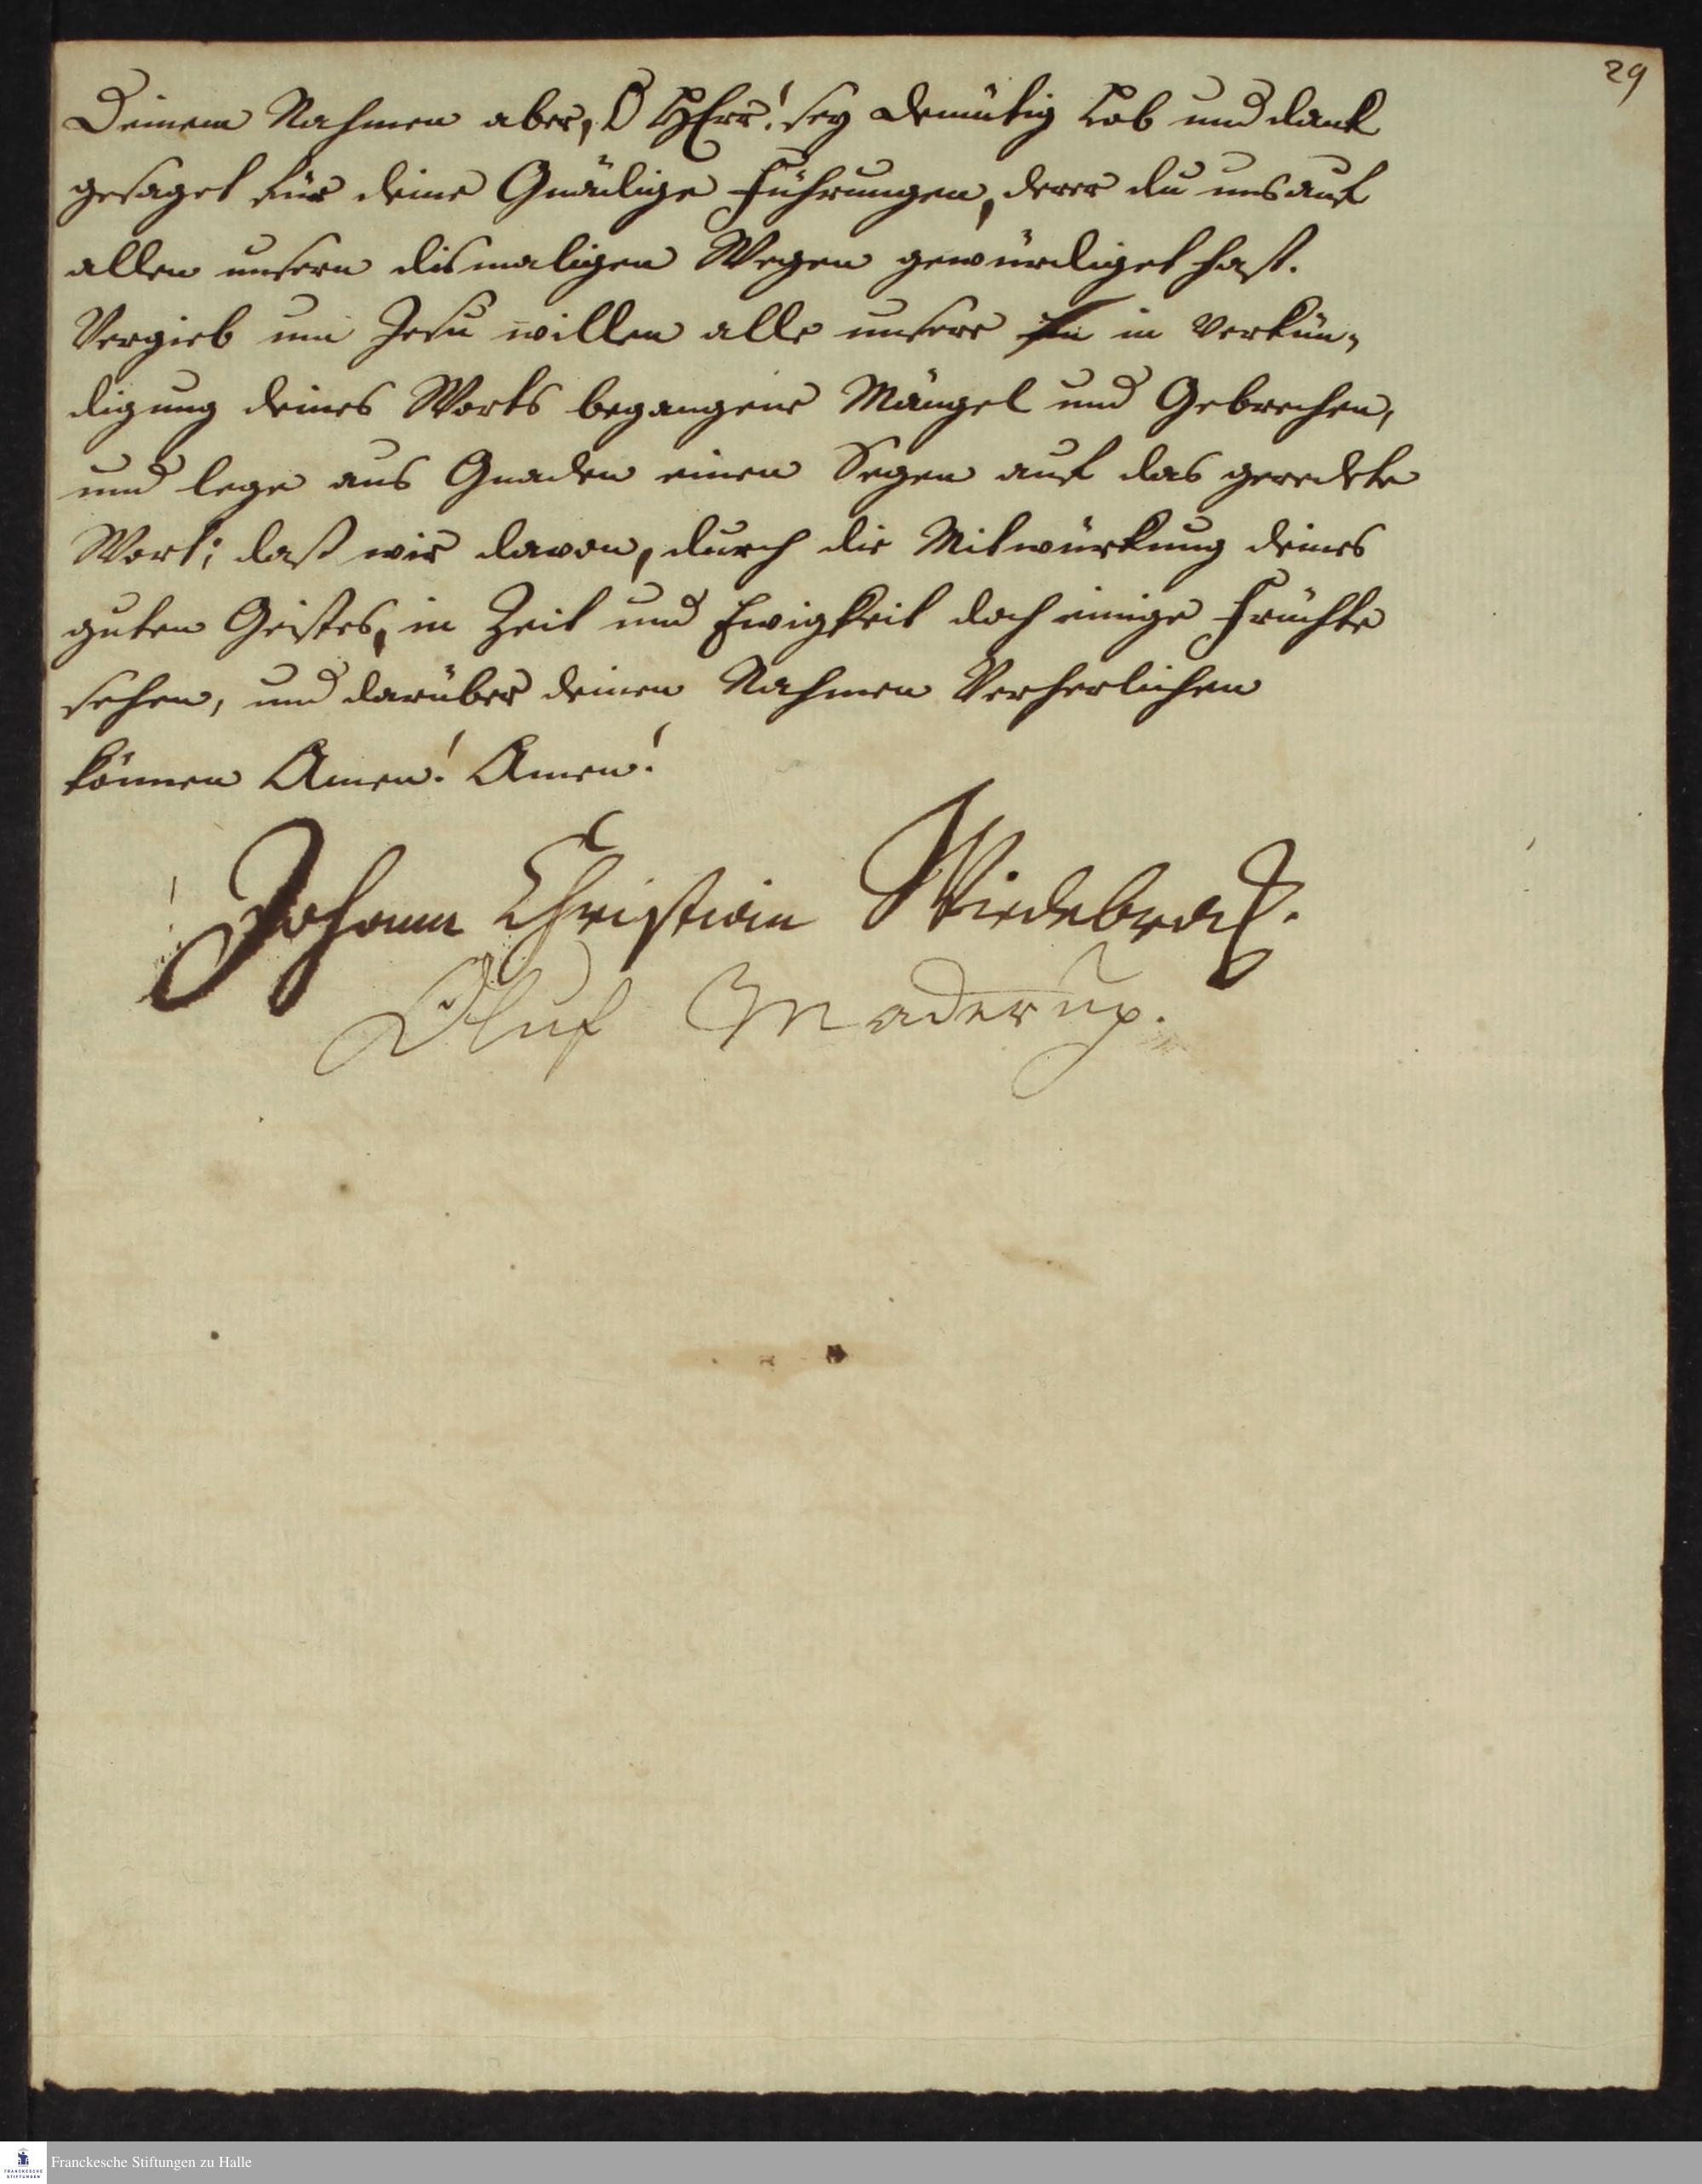 29
Deinem Nahmen aber, O HErr! sey demütig Lob und dank
gesaget für deine Gnädige Führungen, derer du uns auf
allen unsern dismaligen Wegen gewürdiget hast.
Vergieb um Jesu willen alle unsere in Verkün-
digung deines Worts begangene Mängel und Gebrechen,
und lege aus Gnaden einen Segen auf das geredete
Wort; daß wir davon, durch die Mitwürkung deines
guten Geistes, in Zeit und Ewigkeit doch einige Früchte
sehen, und darüber deinen Nahmen Verherlichen
können Amen! Amen!
Johann Christian Wiedebrock.
Oluf Maderup.
Franckesche Stiftungen zu Halle
FRANCKESCHE
STIFTUNGEN